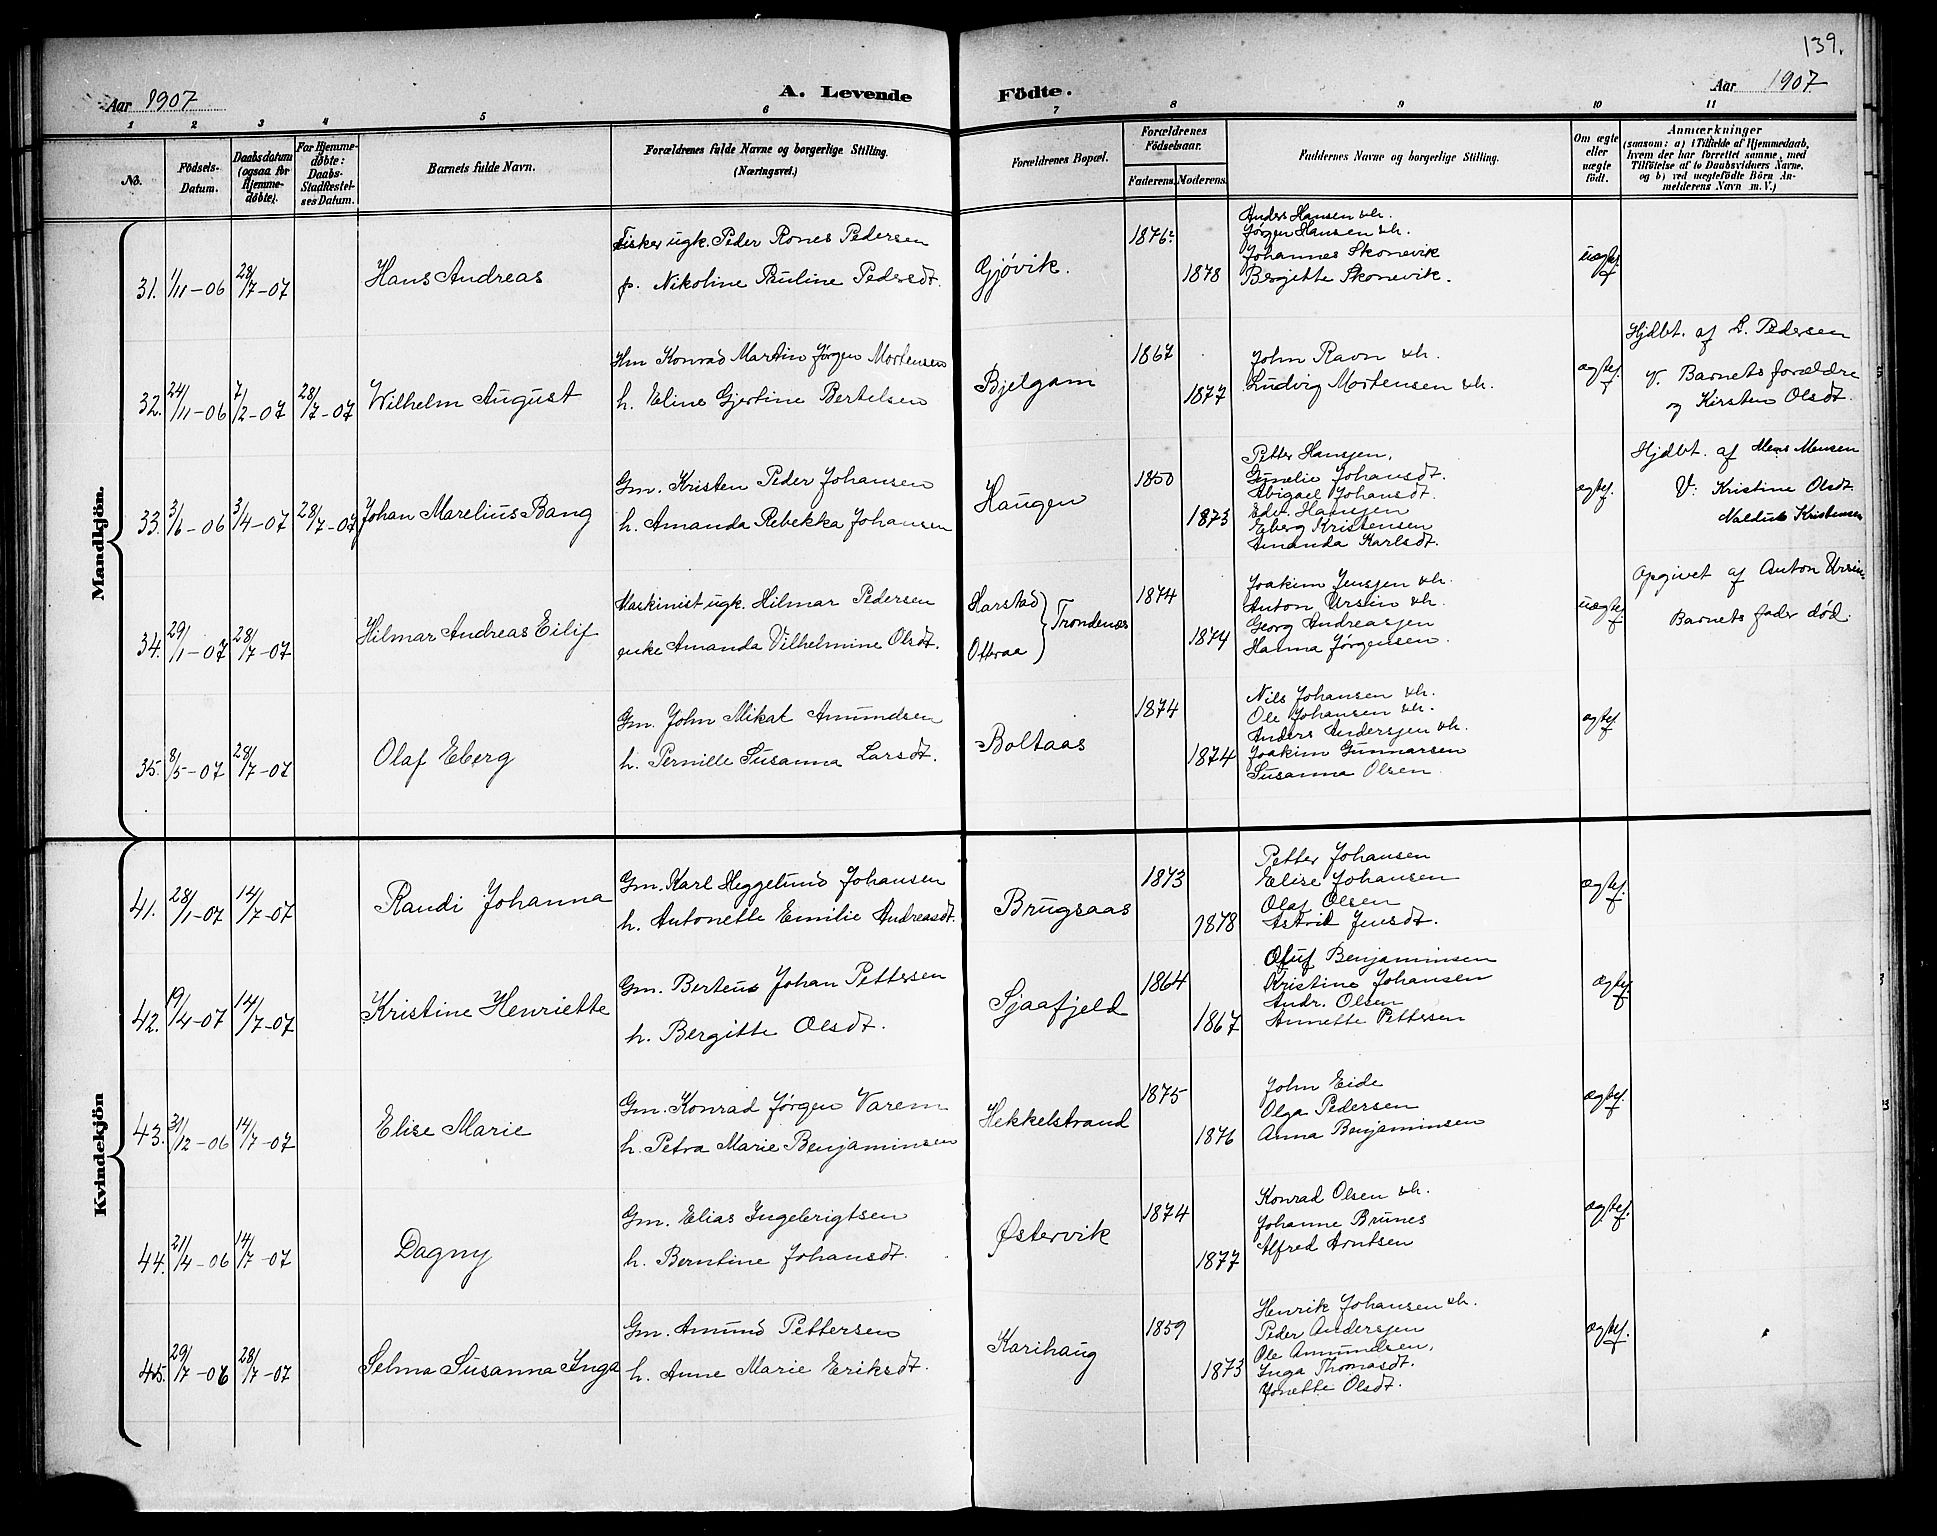 139.
Aar 1907
A. Levende Födte.
Aar 1907
1 2 3 4 5 6 7 8 9 10 11
No.
Födsels-
Datum.
Daabsdatum
(ogsaa for
Hjemme-
døbte).
For Hjemme-
døbte:
Daabs-
Stadfæstel-
ses Datum.
Barnets fulde Navn.
Forældrenes fulde Navne og borgerlige Stilling.
(Næringsvei.)
Forældrenes Bopæl.
Forældrenes
Födselsaar.
Faderens. Moderens.
Faddernes Navne og borgerlige Stilling.
Om ægte
eller
uægte
födt.
Anmærkninger
(saasom: a) i Tilfælde af Hjemmedaab,
hvem der har forrettet samme, med
Tilföielse af to Daabsvidners Navne,
og b) ved uægtefödte Börn An-
melderens Navn m. V.)
Mandkjön.
31. 1/11-06 28/7-07 Hans Andreas
Fisker ugk. Peder Rones Pedersen
p. Nikoline Pauline Pedersdt.
Gjøvik.
1876
1878
Anders Hansen &h.
Jørgen Hansen &h.
Johannes Skonevik
Bergitte Skonevik.
uægtef.
32. 24/11-06 7/2-07 28/7-07 Wilhelm August
Hm Konrad Martin Jørgen Mortensen
h. Eline Gjertine Bertelsen
Bjelgam
1867
1877
John Ravn &h.
Ludvig Mortensen &h.
ægtef.
Hjdbt. af L. Pedersen
V. Barnets forældre
og Kirsten Olsdt.
33. 3/6-06 3/4-07 28/7-07 Johan Marelius Bang
Gm. Kristen Peder Johansen
h. Amanda Rebekka Johansen
Haugen
1850
1873
Petter Hansen,
Gunelie Johansdt.
Abigael Johansdt.
Edv. Hansen
Eberg Kristensen
Amanda Karlsdt.
ægtef.
Hjdbt. af Mons Monsen
V: Kristine Olsdt
Naldus Kristensen
34. 29/1-07 28/7-07 Hilmar Andreas Eilif
Maskinist ugk. Hilmar Pedersen
enke Amanda Vilhelmine Olsdt.
Harstad
Otteraa } Trondenæs
1874
1874
Joakim Jensen &h.
Anton Ursin &h.
Georg Andreasen
Hanna Jørgensen.
uægtef.
Opgivet af Anton Ursin.
Barnets fader død.
35. 8/5-07 28/7-07 Olaf Eberg
Gm. John Mikal Amundsen
h. Pernille Susanna Larsdt.
Boltaas
1874
1874
Nils Johansen &h.
Ole Johansen &h.
Anders Andersen &h.
Joakim Gunnarsen
Susanna Olsen
ægtef
Kvindekjön
41. 28/1-07 14/7-07 Randi Johanna
Gm. Karl Heggelund Johansen
h. Antonette Emilie Andreasdt.
Brugsaas
1873
1878
Petter Johansen
Elise Johansen
Olaf Olsen
Astrid Jensdt.
ægtef.
42. 19/4-07 14/7-07 Kristine Henriette
Gm. Berteus Johan Pettersen
h. Bergitte Olsdt.
Sjaafjeld
1864
1867
Oluf Benjaminsen
Kristine Johansen
Andr. Olsen
Annette Pettersen
ægtef.
43. 31/12-06 14/7-07 Elise Marie
Gm. Konrad Jørgen Varem
h. Petra Marie Benjaminsen
Hekkelstrand
1875
1876
John Eide
Olga Pedersen
Anna Benjaminsen
ægtef.
44. 21/4-06 14/7-07 Dagny
Gm. Elias Ingebrigtsen
h. Berntine Johansdt.
Østervik
1874
1877
Konrad Olsen &h.
Johanne Brunes
Alfred Arntsen
ægtef.
45. 29/7-06 28/7-07 Selma Susanna Inga
Gm. Amund Pettersen
h. Anne Marie Eriksdt.
Karihaug
1859
1873
Henrik Johansen &h.
Peder Andersen
Ole Amundsen,
Inga Thomasdt.
Jonette Olsdt.
ægtef.